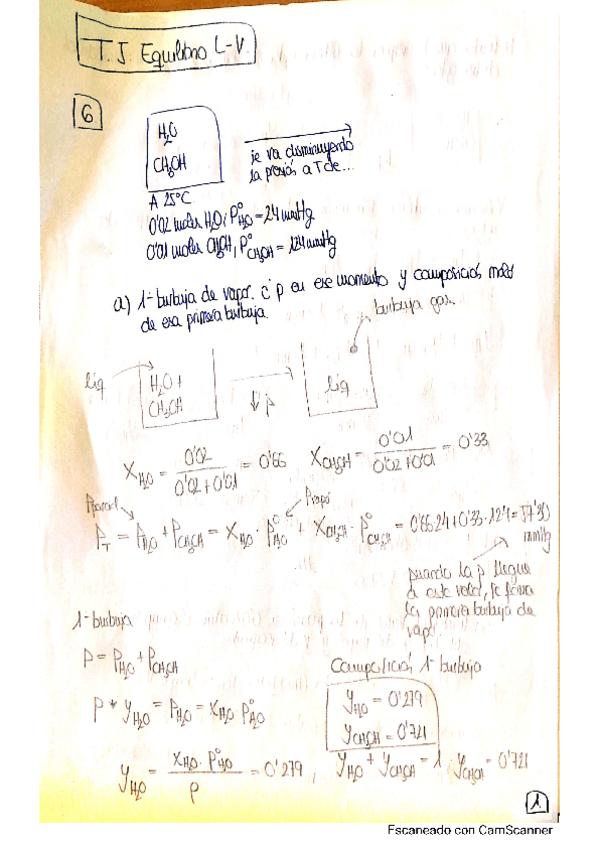 T.J. Equilibrio L-V.
6
H₂O
CH₃OH
se va disminuyendo
la presión a T de...
A 25°C
0'02 moles H₂O, P°H₂O = 24 mmHg
0'01 moles CH₃OH, P°CH₃OH = 124 mmHg
a) 1ª burbuja de vapor. ¿ p en ese momento y composición molar
de esa primera burbuja.
burbuja gas.
liq
H₂O +
CH₃OH
↓ p
liq
XH₂O = 0'02 / (0'02 + 0'01) = 0'66
XCH₃OH = 0'01 / (0'02 + 0'01) = 0'33
Pparcial
Ppropia
PT = PH₂O + PCH₃OH = XH₂O · P°H₂O + XCH₃OH · P°CH₃OH = 0'66·24 + 0'33·124 = 57'3) mmHg
cuando la p llegue
a este valor, se forma
la primera burbuja de
vapor
1ª burbuja
P = PH₂O + PCH₃OH
Composición 1ª burbuja
P * yH₂O = PH₂O = XH₂O P°H₂O
yH₂O = 0'279
yCH₃OH = 0'721
yH₂O = XH₂O · P°H₂O / P = 0'279, yH₂O + yCH₃OH = 1, yCH₃OH = 0'721
1
Escaneado con CamScanner